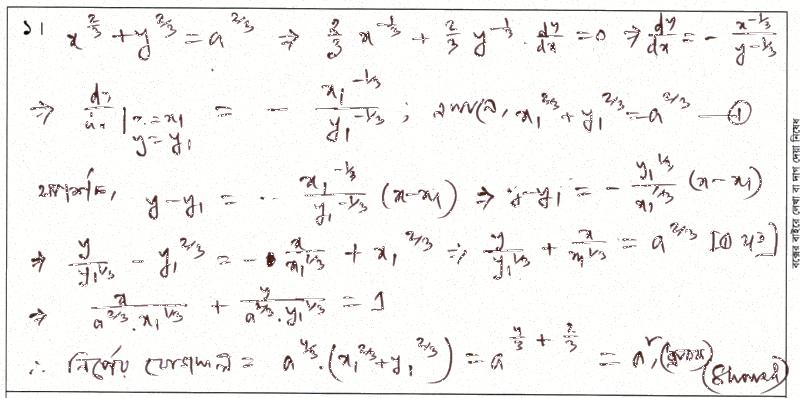 ১। x^{2/3} + y^{2/3} = a^{2/3} ⇒ 2/3 x^{-1/3} + 2/3 y^{-1/3} · dy/dx = 0 ⇒ dy/dx = - x^{-1/3} / y^{-1/3}
⇒ dy/dx | x=x₁ y=y₁ = - x₁^{-1/3} / y₁^{-1/3} ; x₁^{2/3} + y₁^{2/3} = a^{2/3} —①
স্পর্শক, y-y₁ = - x₁^{-1/3} / y₁^{-1/3} (x-x₁) ⇒ y-y₁ = - y₁^{1/3} / x₁^{1/3} (x-x₁)
⇒ y / y₁^{1/3} - y₁^{2/3} = - x / x₁^{1/3} + x₁^{2/3} ⇒ y / y₁^{1/3} + x / x₁^{1/3} = a^{2/3} [① হতে]
⇒ x / a^{2/3}·x₁^{1/3} + y / a^{2/3}·y₁^{1/3} = 1
∴ নির্ণেয় যোগফল = a^{4/3}·(x₁^{2/3} + y₁^{2/3}) = a^{4/3 + 2/3} = a², (ধ্রুবক) (Showed)
বক্সের বাইরে লেখা বা দাগ দেয়া নিষেধ